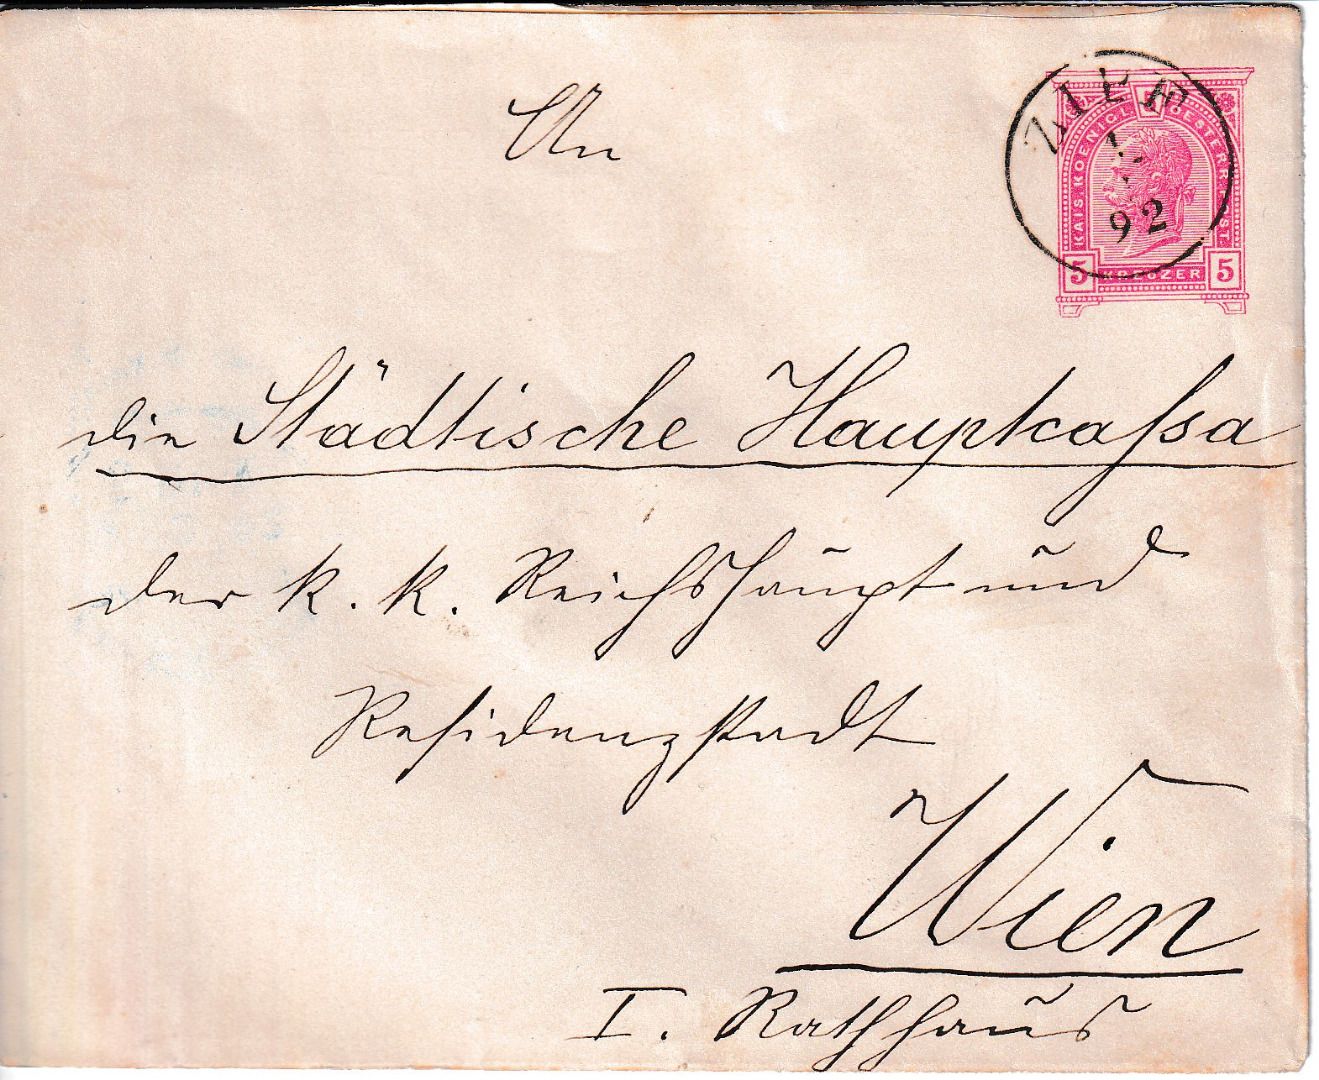 ZIPF
92
KAIS. KOENIGL. OESTERR. POST.
5 KREUZER 5
An
die Städtische Hauptcaſsa
der k. k. Reichshaupt und
Residenzstadt
Wien
I. Rathhaus